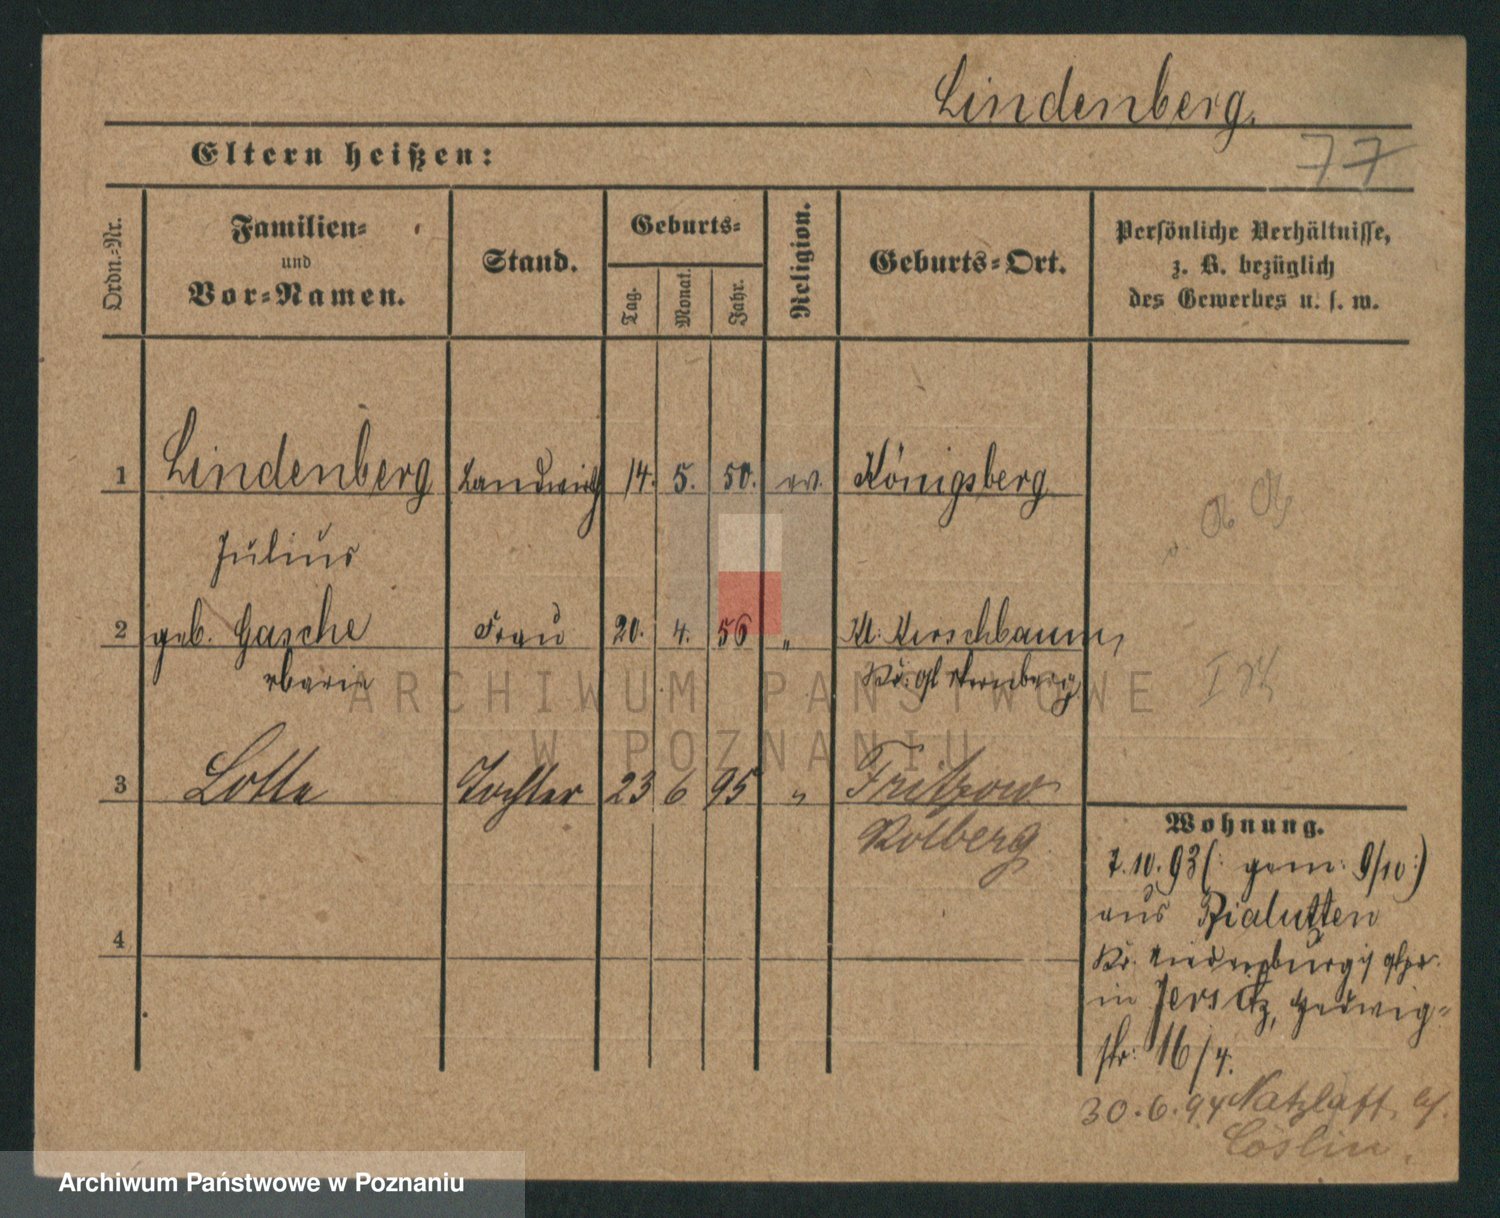 Lindenberg.
77
Eltern heißen:
Ordn.-Nr.
Familien-
und
Vor-Namen.
Stand.
Geburts-
Tag.
Monat.
Jahr.
Religion.
Geburts-Ort.
Persönliche Verhältnisse,
z. B. bezüglich
des Gewerbes u. s. w.
1 Lindenberg Landwirth 14. 5. 50. ev. Königsberg
Julius
2 geb. Gasche Frau 20. 4. 56 " Kl. Kirschbaum,
Kr.
ARCHIWUM PAŃSTWOWE
W POZNANIU
3 Lotte Tochter 23 6 95 " Fritzow
Kolberg
4
Wohnung.
7.10.93 (: gem: 9/10 :)
aus Bialutten
Kr. Neidenburg
in Jersitz, Hedwig-
str: 16/4.
30.6.94 Natzlaff,
Cöslin.
Archiwum Państwowe w Poznaniu